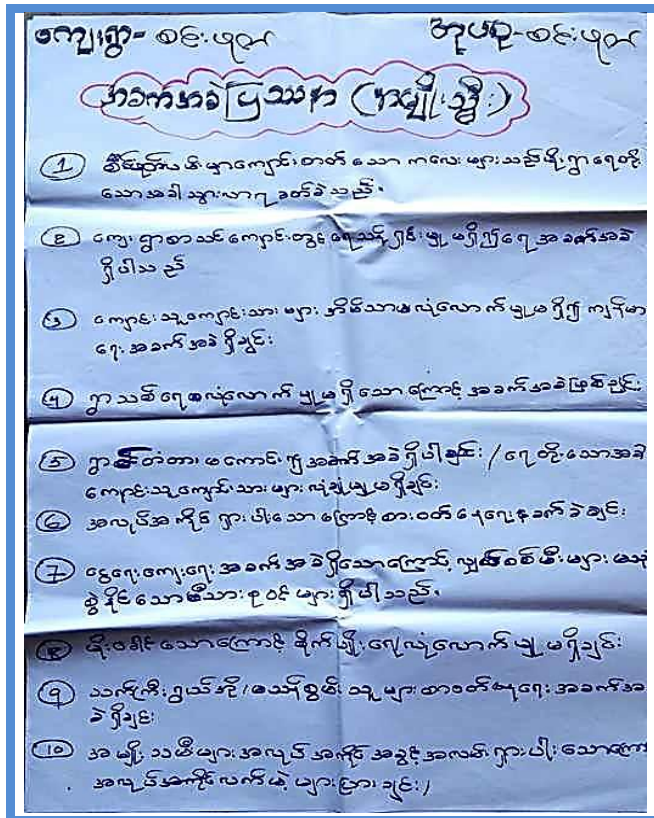 ကျေးရွာ- စင်းပုတ် အုပ်စု-စင်းပုတ်
အခက်အခဲပြဿနာ (အမျိုးသ္မီး)
① မှာကျောင်းတတ် သော ကလေး များသည် မိုးရွာ ရေတို
သော အခါ သွားလာရ ခတ်ခဲ သည်။
② ကျေးရွာစာသင် ကျောင်း တွင် ရေသန့် ရှင်း မှု မရှိ၍ ရေ အခက်အခဲ
ရှိပါသည်
③ ကျောင်းသူ ကျောင်းသား များ အိမ်သာ မလုံလောက် မှု မရှိ၍ ကျန်မာ
ရေး အခက် အခဲ ရှိချင်း
④ ရွာ သစ် ရေ မလုံလောက် မှု မ ရှိ သော ကြောင့် အခက်အခဲ ဖြစ်ချင်း
⑤ ရွာ တံတား မကောင်း ၍ အခက် အခဲ ရှိပါ ချင်း / ရေ တိုး သောအခါ
ကျောင်းသူ ကျောင်းသား များ လုံချုံမှု မရှိချင်း
⑥ အလုပ်အကိုင် ရှားပါး သော ကြောင့် စားဝတ် နေရေး ခက် ခဲ ချင်း
⑦ ငွေရေး ကျေးရေး အခက် အခဲ ရှိသော ကြောင့် လျှပ်စစ် မီး များ မသုံ
စွဲ နိုင် သော မိသားစု ဝင် များ ရှိ ပါ သည်။
⑧ မိုး ခေါင် သော ကြောင့် စိုက်ပျိုး ရေ လုံလောက် မှု မ ရှိချင်း
⑨ သက်ကြီး ရွယ်အို / မသန်စွမ်း သူ များ စားဝတ် နေရေး အခက် အ
ခဲ ရှိချင်း
⑩ အမျိုး သမီး များ အလုပ် အကိုင် အခွင့် အလမ်း ရှားပါး သောကြော
အလုပ် အကိုင် လက်မဲ့ များပြား ချင်း /